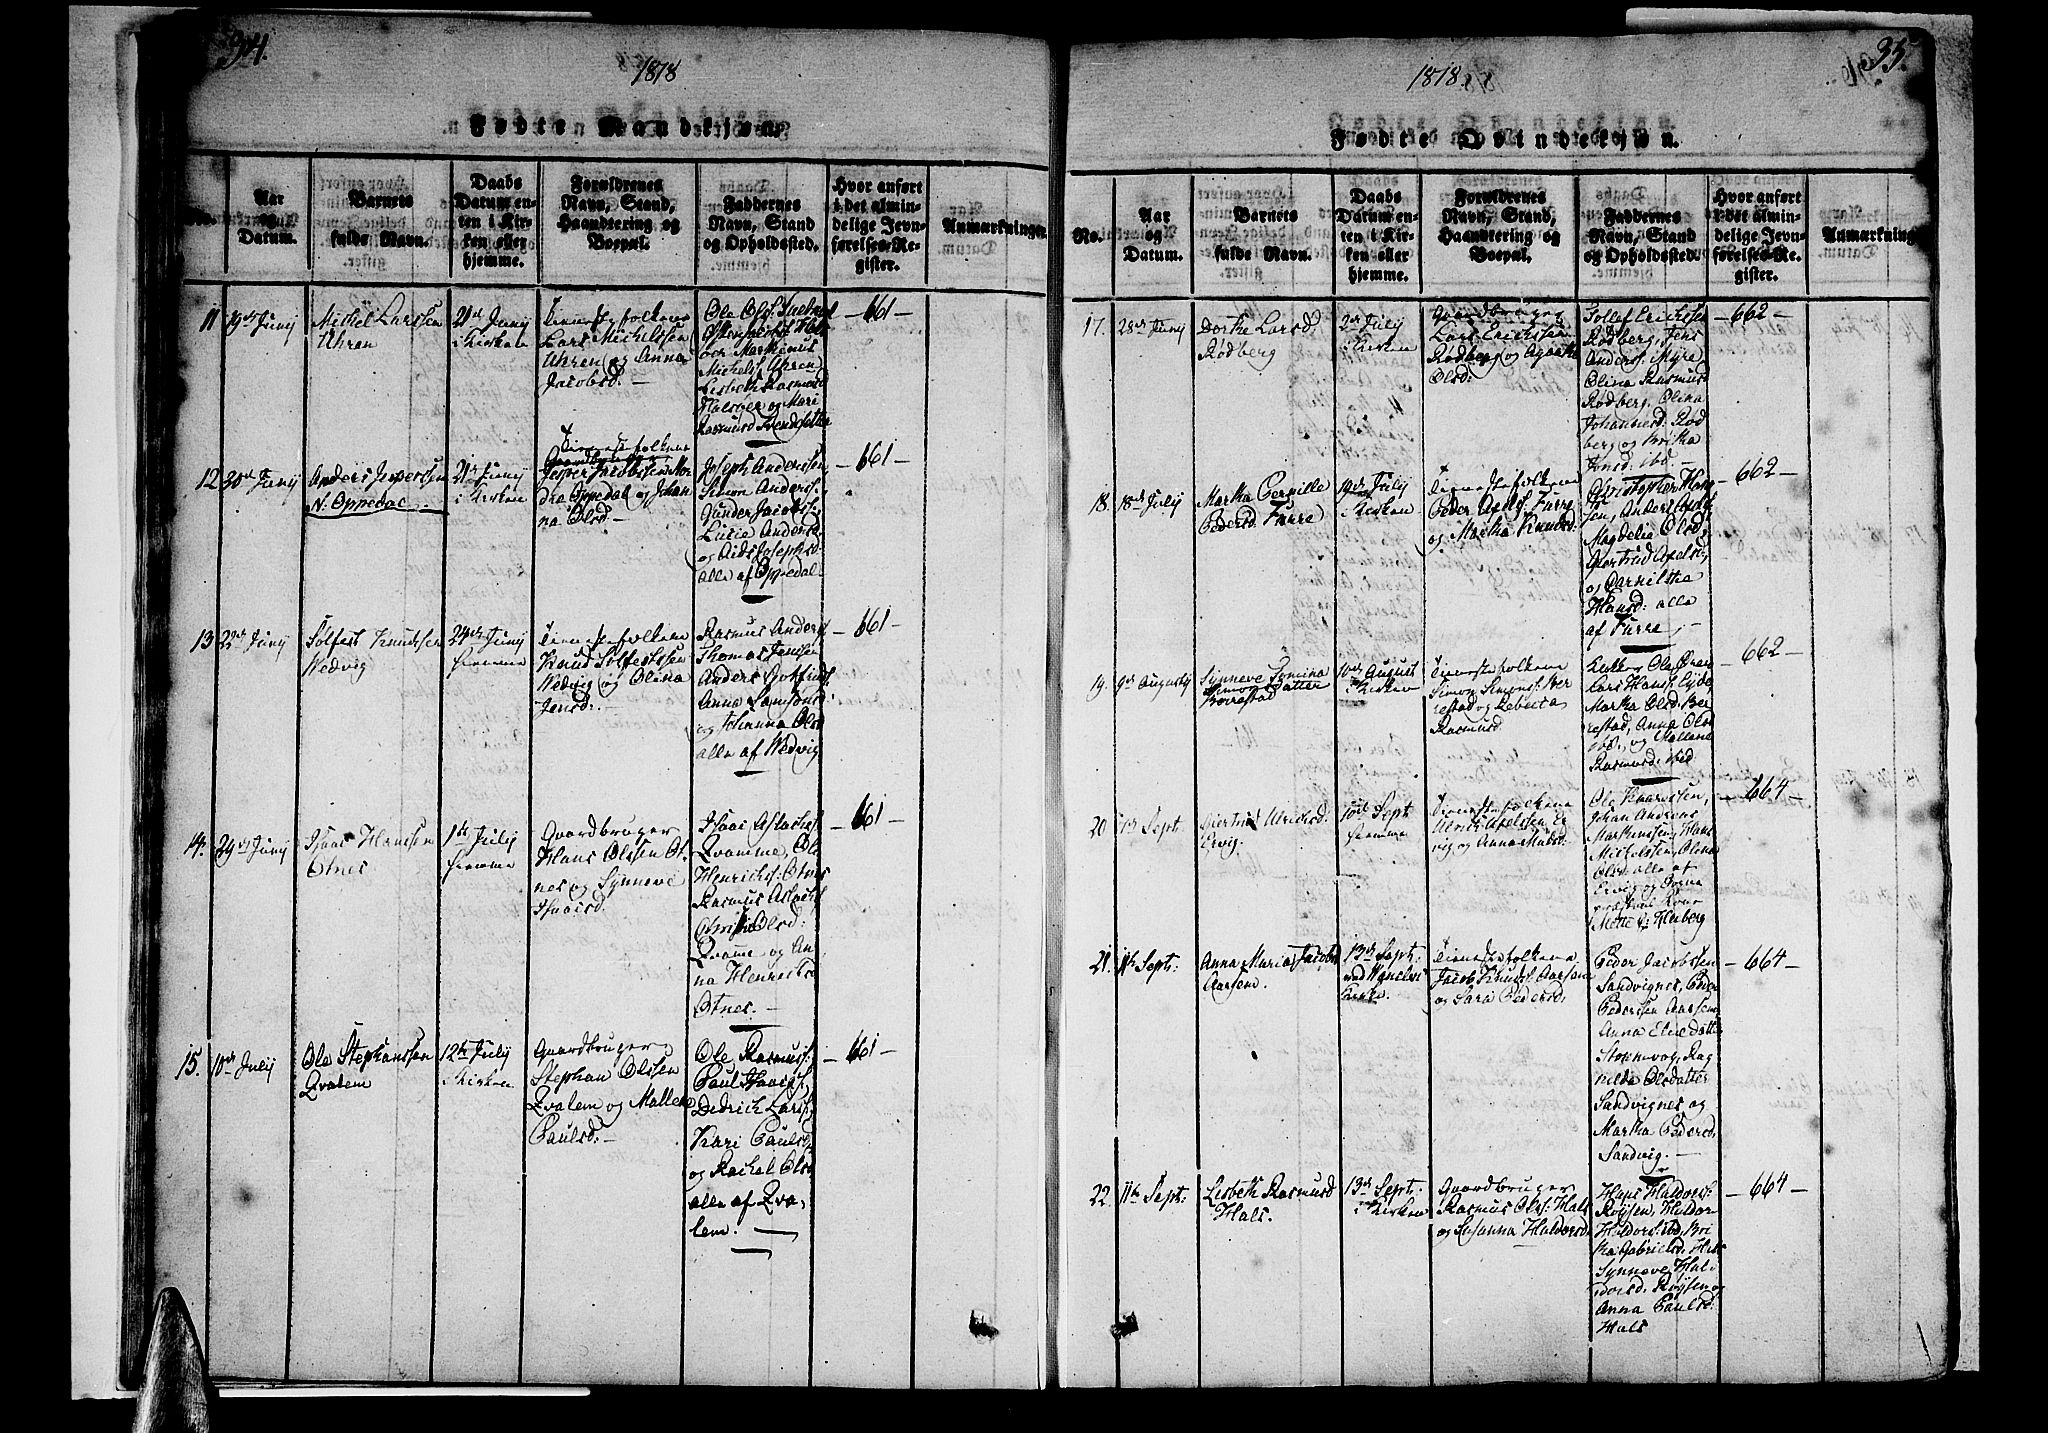 34.
1818
Fødte Mandkjøn.
No.
Aar
og
Datum.
Barnets
fulde Navn.
Daabs
Datum en-
ten i Kir-
ken eller
hjemme.
Forældrenes
Navn, Stand,
Haandtering og
Boepæl.
Faddernes
Navn, Stand
og Opholdssted.
Hvor anført
i det almin-
delige Jevn-
førelses-Re-
gister.
Anmærkninger
11
19de Junij
Michel Larssen
Uhren
21de Junij
i Kirken
Tieneste folkene
Lars Michelssen
Uhren og Anna
Jacobsd: —
Markinus
Michels: Uhren
Lisbeth Rasmusd
Halsøer og Mari
Rasmusd
— 661 —
12
20de Junij
Anders Jespersen
N: Oppedal.
21de Junij
i Kirken
Tieneste folkene
Jesper Jacobssen
Oppedal og Johan
na Olsd: —
Joseph Anderssen
Simon Anderss:
Gunder Jacobss:
Lucie Andersd
og Josephsd:
alle af Oppedal.
— 661 —
13
22de Junij
Sølfest Knudssen
Wedvig
24de Junij
hjemme
Tieneste folkene
Knud Sølfestssen
Wedvig og Olina
Jensd: —
Rasmus Anders:
Thomas Jenssen
Anders
Anna Samsonsd:
og Johanna Olsd
alle af Wedvig
— 661 —
14.
29de Junij
Isaac Hanssen
Otnes
1de Julij
hjemme
Gaardbruger
Hans Olssen Ot-
nes og Synneve
Isaacsd.
Isaac Aslachs:
Qvamme, Ole
Henrichs: Otnes
Rasmus Aslachs:
Olsd:
Qvame og An
na Henrichsd
Otnes. —
— 661 —
15.
10de Julij
Ole Stephanssen
Qvalem
12te Julij
i Kirken
Gaardbruger
Stephan Olssen
Qvalem og Mallene
Paulsd: —
Ole Rasmuss:
Paul Isaacs:
Dedrick Larss:
Kari Paulsd
og Rachel Olsd
alle af Qva-
lem. —
— 661 —
35.
1818.
Fødte Qvindekjøn.
No.
Aar
og
Datum.
Barnets
fulde Navn.
Daabs
Datum en-
ten i Kir-
ken eller
hjemme.
Forældrenes
Navn, Stand,
Haandtering og
Boepæl.
Faddernes
Navn, Stand
og Opholdssted.
Hvor anført
i det almin-
delige Jevn-
førelses-Re-
gister.
Anmærkning
17.
28de Junij
Dorthe Larsd
Rødberg
2de Julij
i Kirken
Gaardbruger
Lars Erichssen
Rødberg og Agathe
Olsd:
Tollef Erichssen
Rødberg, Jens
Anderss: Myre
Olina Rasmusd
Rødberg, Olina
Johannesd: Rød
berg og Britha
Jensd: ibd. —
— 662 —
18.
18de Julij
Martha Pernille
Pedersd: Furre
19de Julij
i Kirken
Tieneste folkene
Peder Axels: Furre
og Martha Knudsd:
Christopher Han
sen,
Magdelie Olsd:
Giertrud Axelsd,
og Pernilska
Hansd: alle
af Furre, —
— 662 —
19.
9de Augusty
Synneve Symina
Simons Datter
Berrestad
10de August
i Kirken
Tieneste folkene
Simon Simons: Ber
restad og Rebecta
Rasmusd
Lars Hanss: Eyde,
Martha Olsd: Ber
restad, Anna Olsd
ibd., og Mallene
Rasmusd: ibed
— 662 —
20
1de Sept
Giertrud Ulrichsd:
Ervig.
10de Sept
hjemme
Tieneste folkene
Ulrich Axelssen Er
vig og Anna
Ole Knudssen,
Johan Andreas
Markussen, Hans
Michelssen, Olina
Olsd: alle af
Ervig og Sogne
præstens Kone
Mette
— 664 —
21.
11te Sept:
Anna Maria Jacobsd
Aarsem.
13de Sept:
ved
Kirke.
Tieneste folkene,
Jacob Knuds: Aarsem
og Sara Pedersd,
Peder Jacobssen
Sandvignes, Peder
Pederssen Aarsem,
Anna
Rag
nilda Olsdatter
Sandvignes og
Martha Pedersd,
Sandvig. —
— 664 —
22
11te Sept:
Lisbeth Rasmusd
Hals.
13de Sept:
i Kirken
Gaardbruger
Rasmus Ols: Hals
og Susanna Haldorsd.
Hans Haldors:
Røysen, Haldor
Haldors: ibd, Bri
tha Gabrielsd, Hals
Synneve Hal
dorsd, Røysen og
Anna Paulsd:
Hals
— 664 —